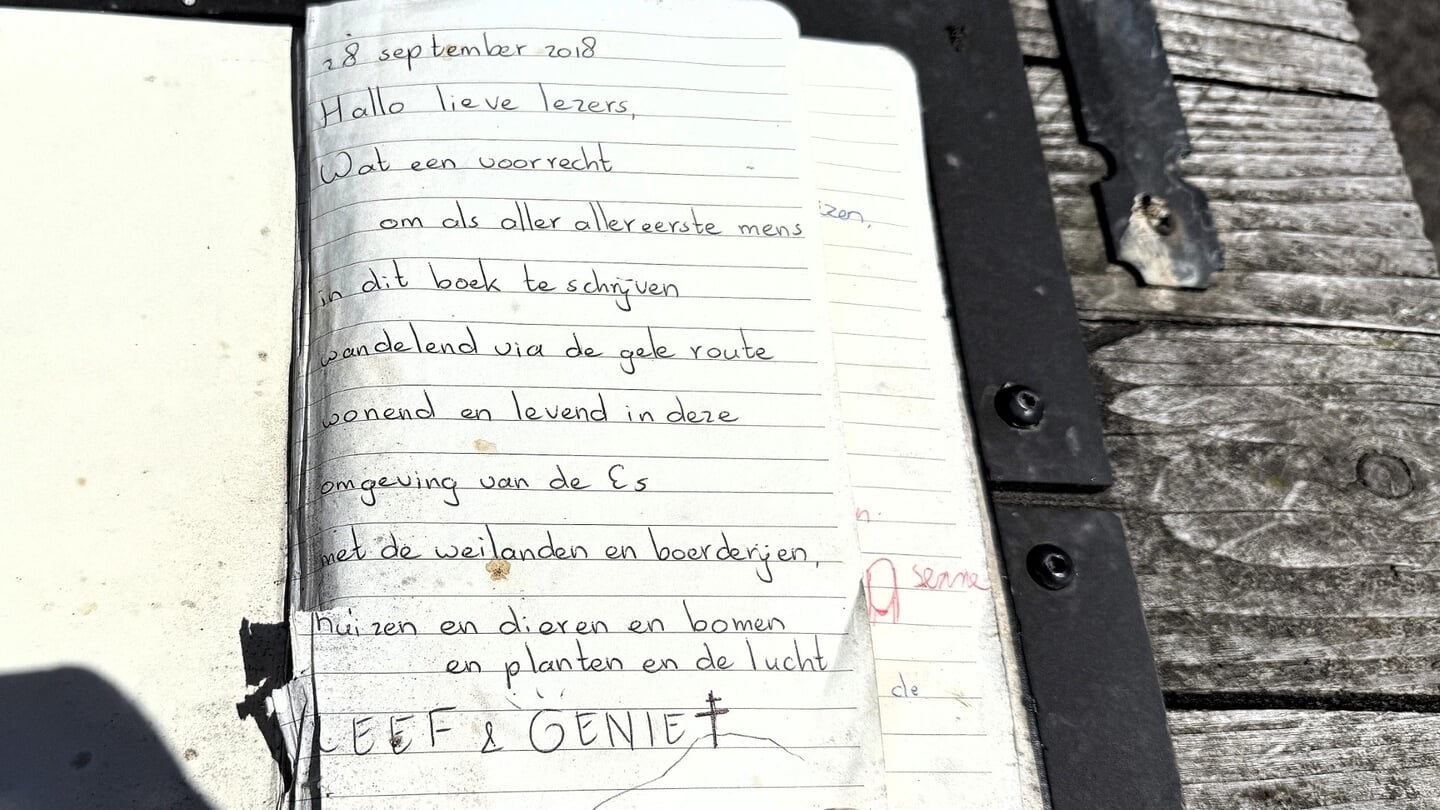 28 september 2018
Hallo lieve lezers,
Wat een voorrecht
om als aller allereerste mens
in dit boek te schrijven
wandelend via de gele route
wonend en levend in deze
omgeving van de Es
met de weilanden en boerderijen,
huizen en dieren en bomen
en planten en de lucht
LEEF & GENIET
izen,
n.
senna
de